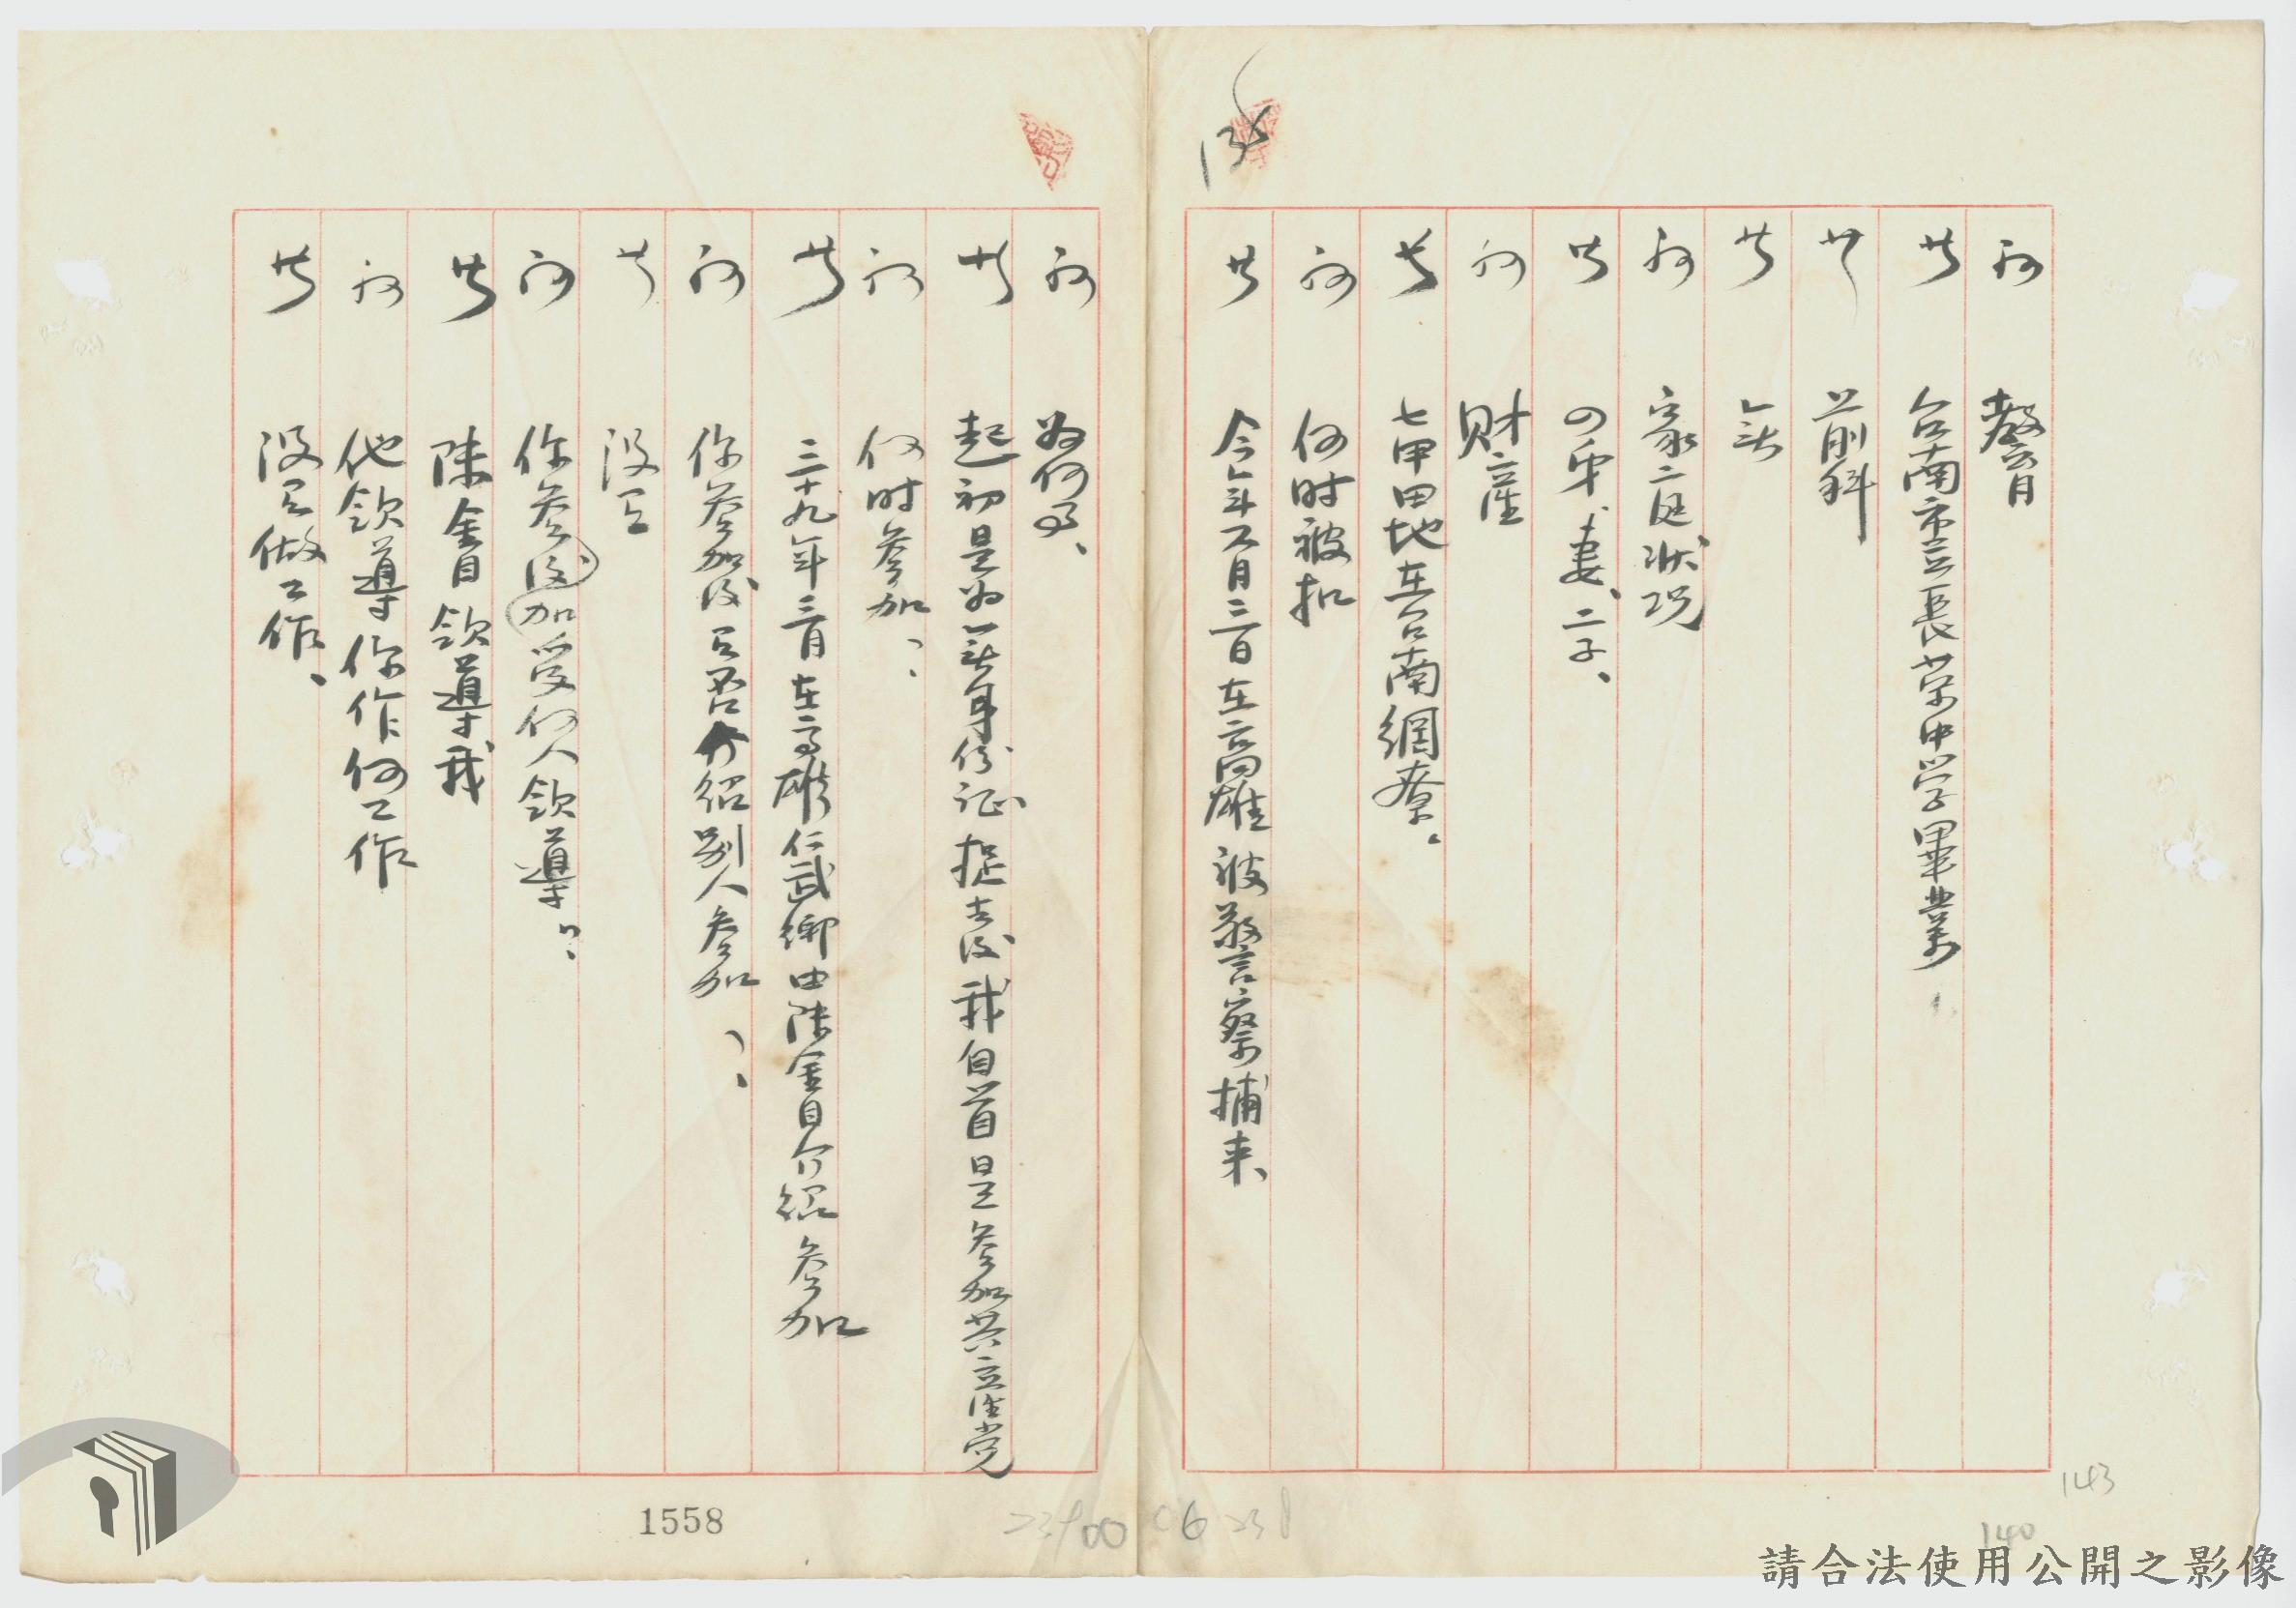 問 教育
答 台南市立長荣中学畢業
問 前科
答 無
問 家庭狀況
答 四弟、妻、二子、
問 財產
答 七甲田地在台南網寮。
問 何时被扣
答 今年五月三日在高雄被警察捕来、
問 为何事、
答 起初是为無身份证捉去後我自首是参加共產党
問 何时参加、
答 三十九年三月在高雄仁武鄉由陳金目介紹参加
問 你参加後有否介紹别人参加、
答 没有
問 你参後加受何人領導?
答 陳金目領導我
問 他領導你作何工作
答 没有做工作、
1558
143
140
請合法使用公開之影像